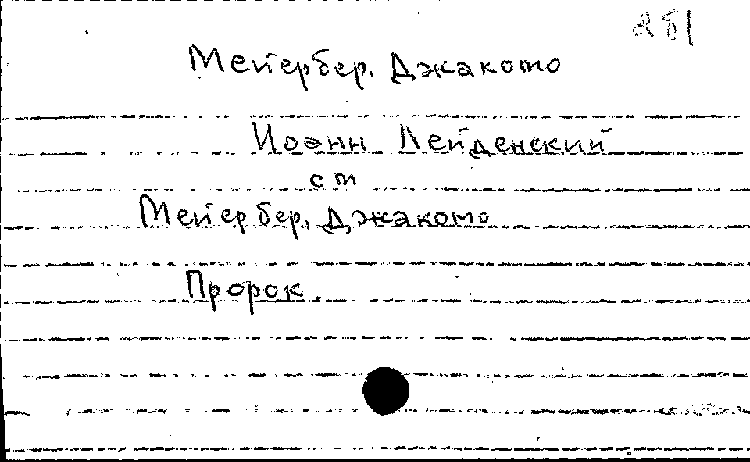 281
Мейербер, Джакомо
Иоанн Лейденский
см
Мейербер, Джакомо
Пророк.